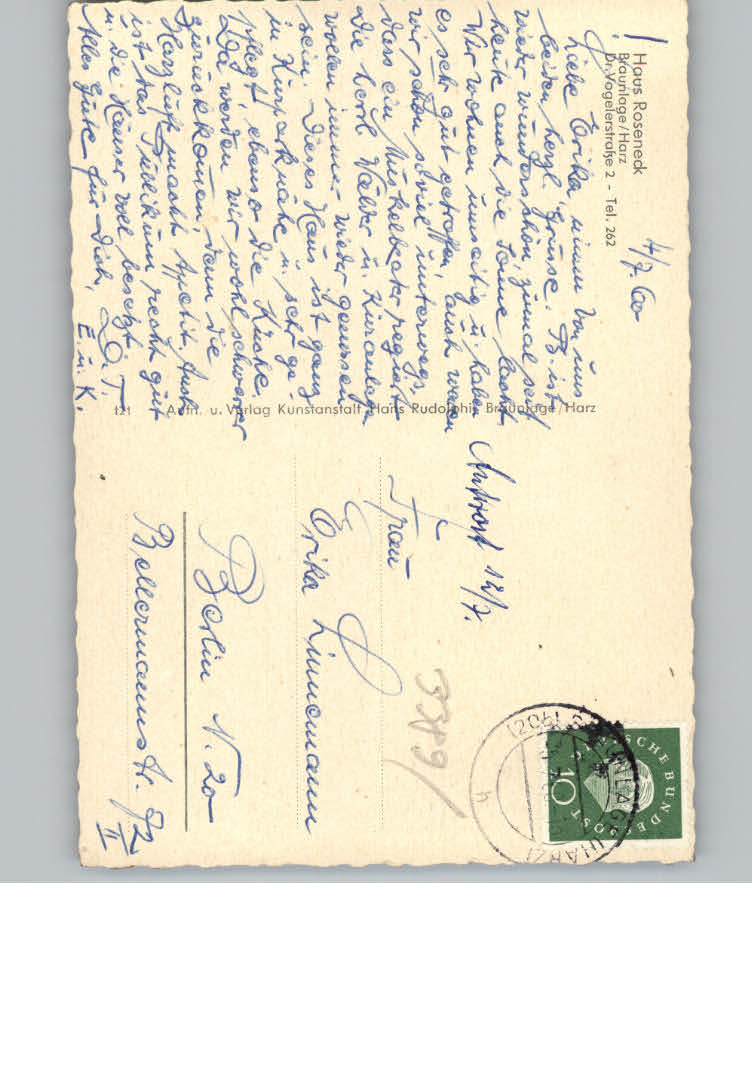 Haus Roseneck
Braunlage/Harz
Dr. Vogelerstraße 2 - Tel. 262
4/7. 60
Liebe Erika nimm von uns
beiden herzl. Grüsse. B. ist
wieder wunderschön, zumal seit
heute auch die Sonne lacht.
Wir wohnen umseitig u. haben
es sehr gut getroffen, auch waren
wir schon soviel unterwegs,
dass ein Muskelkater regiert.
Die herrl. Wälder u. Kuranlage
wollen immer wieder genossen
sein. Dieses Haus ist ganz
in Kurparknähe u. sehr ge-
pflegt ebenso die Küche.
werden wir wohl schwerer
zurückkommen, denn die
Harzluft macht Apetit. Auch
ist das Publikum recht gut
u. die Häuser voll besetzt.
Alles Gute für Dich,
E. u. K.
121 Aufn. u. Verlag Kunstanstalt Hans Rudolphi, Braunlage/Harz
Antwort 12/7.
Frau
Erika Linnemann
Berlin N. 20
Bellermannstr. 92
II
3389/
DEUTSCHE BUNDESPOST
10
(20b) BRAUNLAGE (HARZ)
h